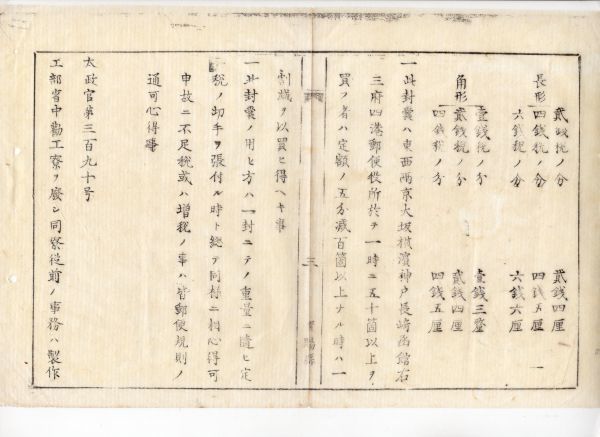 長形 貳銭税ノ分 貳銭四厘
四銭税ノ分 四銭五厘
六銭税ノ分 六銭六厘
角形 壹銭税ノ分 壹銭三厘
貳銭税ノ分 貳銭四厘
四銭税ノ分 四銭五厘
一此封嚢ハ東西両京大坂横濱神戸長崎函館右
三府四港郵便役所於テ一時ニ五十箇以上ヲ
買フ者ハ定額ノ五分減百箇以上ナル時ハ一
割減ヲ以買ヒ得ヘキ事
一此封嚢ノ用ヒ方ハ一封ニテノ重量ニ随ヒ定
税ノ切手ヲ張付ル時ト總テ同様ニ相心得可
申故ニ不足税或ハ増税ノ事ハ皆郵便規則ノ
通可心得事
太政官第三百九十号
工部省中勸工寮ヲ廢シ同寮従前ノ事務ハ製作
三